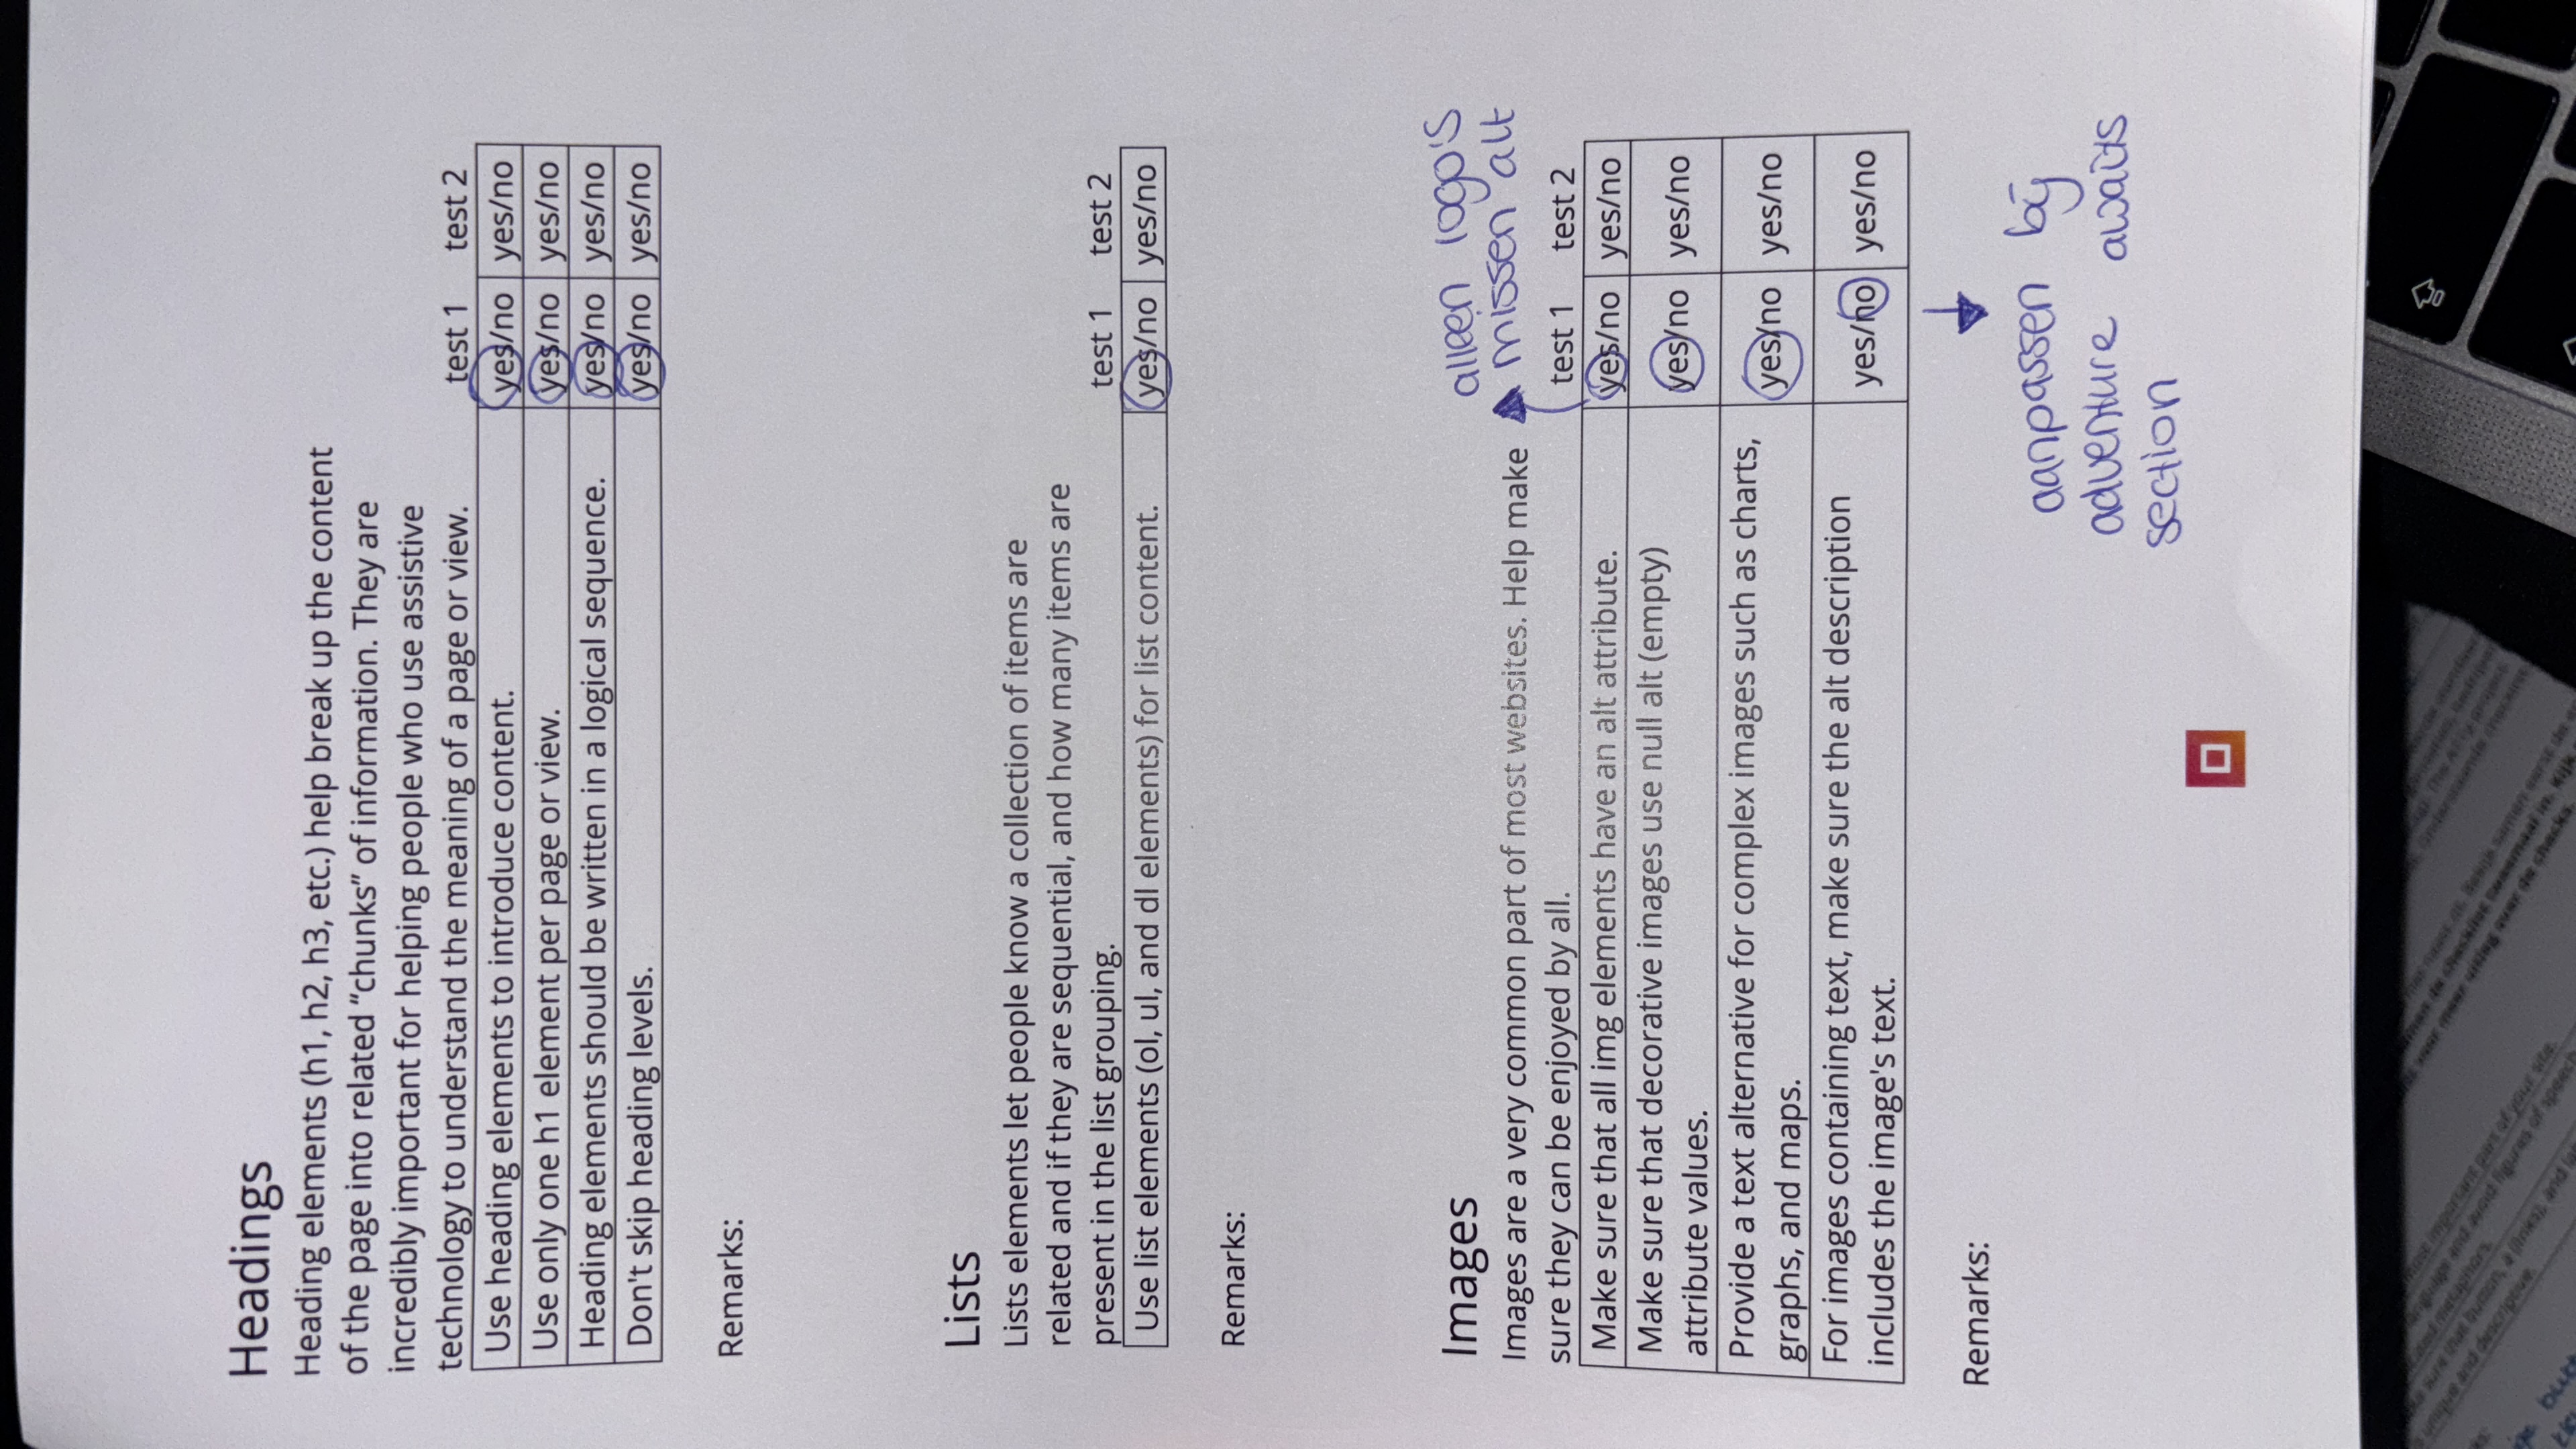 Headings
Heading elements (h1, h2, h3, etc.) help break up the content
of the page into related “chunks” of information. They are
incredibly important for helping people who use assistive
technology to understand the meaning of a page or view. test 1 test 2
Use heading elements to introduce content. yes/no yes/no
Use only one h1 element per page or view. yes/no yes/no
Heading elements should be written in a logical sequence. yes/no yes/no
Don't skip heading levels. yes/no yes/no
Remarks:
Lists
Lists elements let people know a collection of items are
related and if they are sequential, and how many items are
present in the list grouping. test 1 test 2
Use list elements (ol, ul, and dl elements) for list content. yes/no yes/no
Remarks:
alleen logo's
missen alt
Images
Images are a very common part of most websites. Help make
sure they can be enjoyed by all. test 1 test 2
Make sure that all img elements have an alt attribute. yes/no yes/no
Make sure that decorative images use null alt (empty)
attribute values. yes/no yes/no
Provide a text alternative for complex images such as charts,
graphs, and maps. yes/no yes/no
For images containing text, make sure the alt description
includes the image's text. yes/no yes/no
Remarks:
aanpassen bij
adventure awaits
section
important part of your site.
language and avoid figures of speech
unique and descriptive.